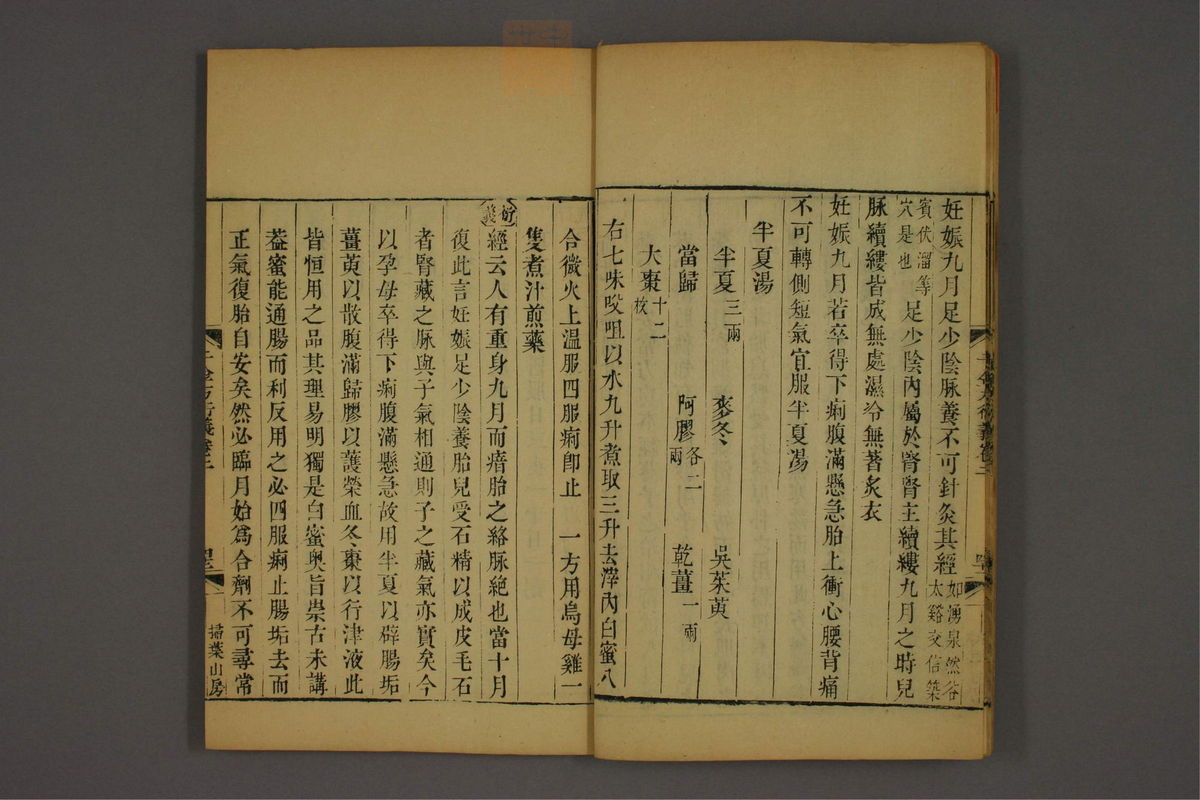 妊娠九月足少陰脉養不可針灸其經如湧泉然谷太谿交信築
賓伏溜等穴是也足少陰內屬於腎腎主續縷九月之時兒
脉續縷皆成無處濕冷無著炙衣
妊娠九月若卒得下痢腹滿懸急胎上衝心腰背痛
不可轉側短氣宜服半夏湯
半夏湯
半夏三兩 麥冬 吳茱萸
當歸 阿膠各二兩 乾薑一兩
大棗十二枚
右七味㕮咀以水九升煮取三升去滓內白蜜八
合微火上溫服四服痢卽止 一方用烏母雞一
隻煮汁煎藥
衍義經云人有重身九月而瘖胎之絡脉絕也當十月
復此言妊娠足少陰養胎兒受石精以成皮毛石
者腎藏之脉與子氣相通則子之藏氣亦實矣今
以孕母卒得下痢腹滿懸急故用半夏以辟腸垢
薑萸以散腹滿歸膠以護榮血冬棗以行津液此
皆恒用之品其理易明獨是白蜜奧旨崇古未講
葢蜜能通腸而利反用之必四服痢止腸垢去而
正氣復胎自安矣然必臨月始爲合劑不可尋常
千金方衍義卷二
掃葉山房